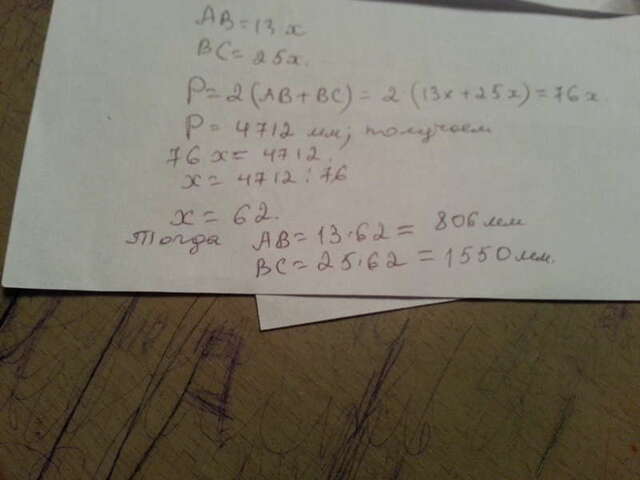 AB = 13x
BC = 25x.
P = 2 (AB + BC) = 2 (13x + 25x) = 76x.
P = 4712 мм; получаем
76x = 4712.
x = 4712 : 76
x = 62.
Тогда AB = 13·62 = 806 мм
BC = 25·62 = 1550 мм.